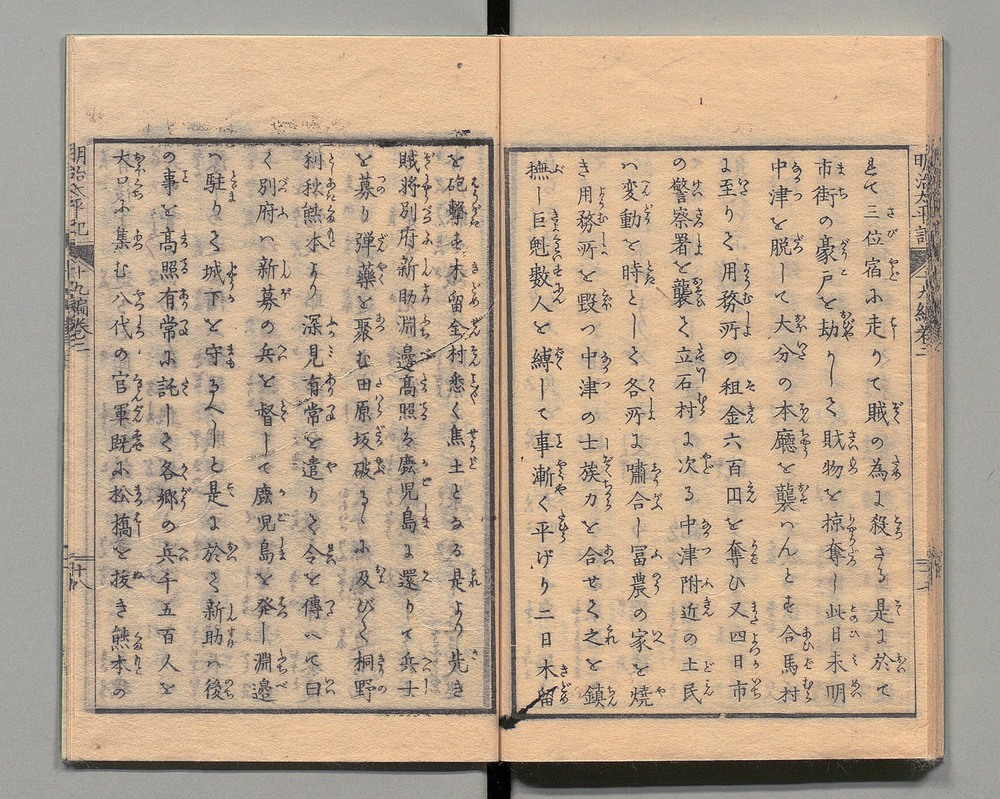 えて三位宿に走りて賊の為に殺さる是に於て
市街の豪戸を劫かして財物を掠奪し此日未明
中津を脱して大分の本廳を襲はんとを合馬村
に至りて用務所の租金六百円を奪ひ又四日市
の警察署を襲て立石村に次る中津附近の土民
ハ変動を時として各所に嘯合し冨農の家を焼
き用務所を毀つ中津の士族力を合せて之を鎮
撫し巨魁数人を縛して事漸く平げり二日木留
を砲撃す木留金村悉く焦土となる是より先き
賊将別府新助淵邉髙照を鹿児島に還りて兵士
を募り弾藥を聚む田原坂破るゝに及びて桐野
利秋熊本より深見有常を遣りて令を傳へて曰
く別府ハ新募の兵を督して鹿児島を発し淵邉
ハ駐りて城下を守るべしと是に於て新助ハ後
の事を髙照有常に託して各郷の兵千五百人を
大口に集む八代の官軍既に松橋を抜き熊本の
明治太平記
十九編巻之二
十八